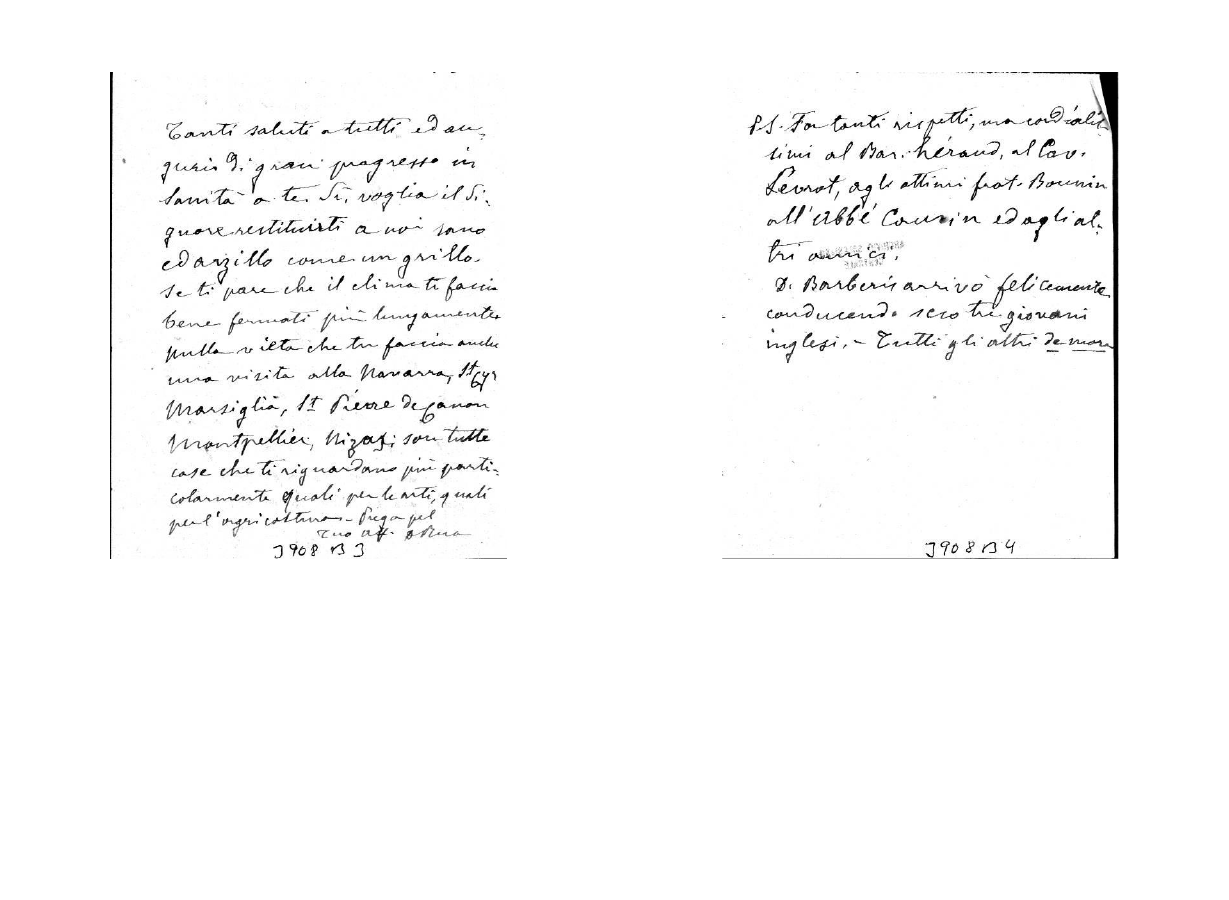 Tanti saluti a tutti ed au-
gurii di gran progresso in
sanità a te. Sì, voglia il Si-
gnore restituirti a noi sano
ed arzillo come un grillo.
Se ti pare che il clima ti faccia
bene fermati più lungamente
nulla vieta che tu faccia anche
una visita alla Navarra, St Cyr
Marsiglia, St Pierre de Canon
Montpellier, Nizza; son tutte
case che ti riguardano più parti-
colarmente quali per le arti, quali
per l'agricoltura - Prega pel
Tuo aff. D Rua
3908 B 3
P.S. Fa tanti rispetti, ma cordialis-
simi al Bar. Héraud, al Cav.
Levrot, agli ottimi frat. Bounin
all'Abbé Cauvin ed agli al-
tri amici.
D. Barberis arrivò felicemente
conducendo seco tre giovani
inglesi. - Tutti gli altri de more
3908 B 4